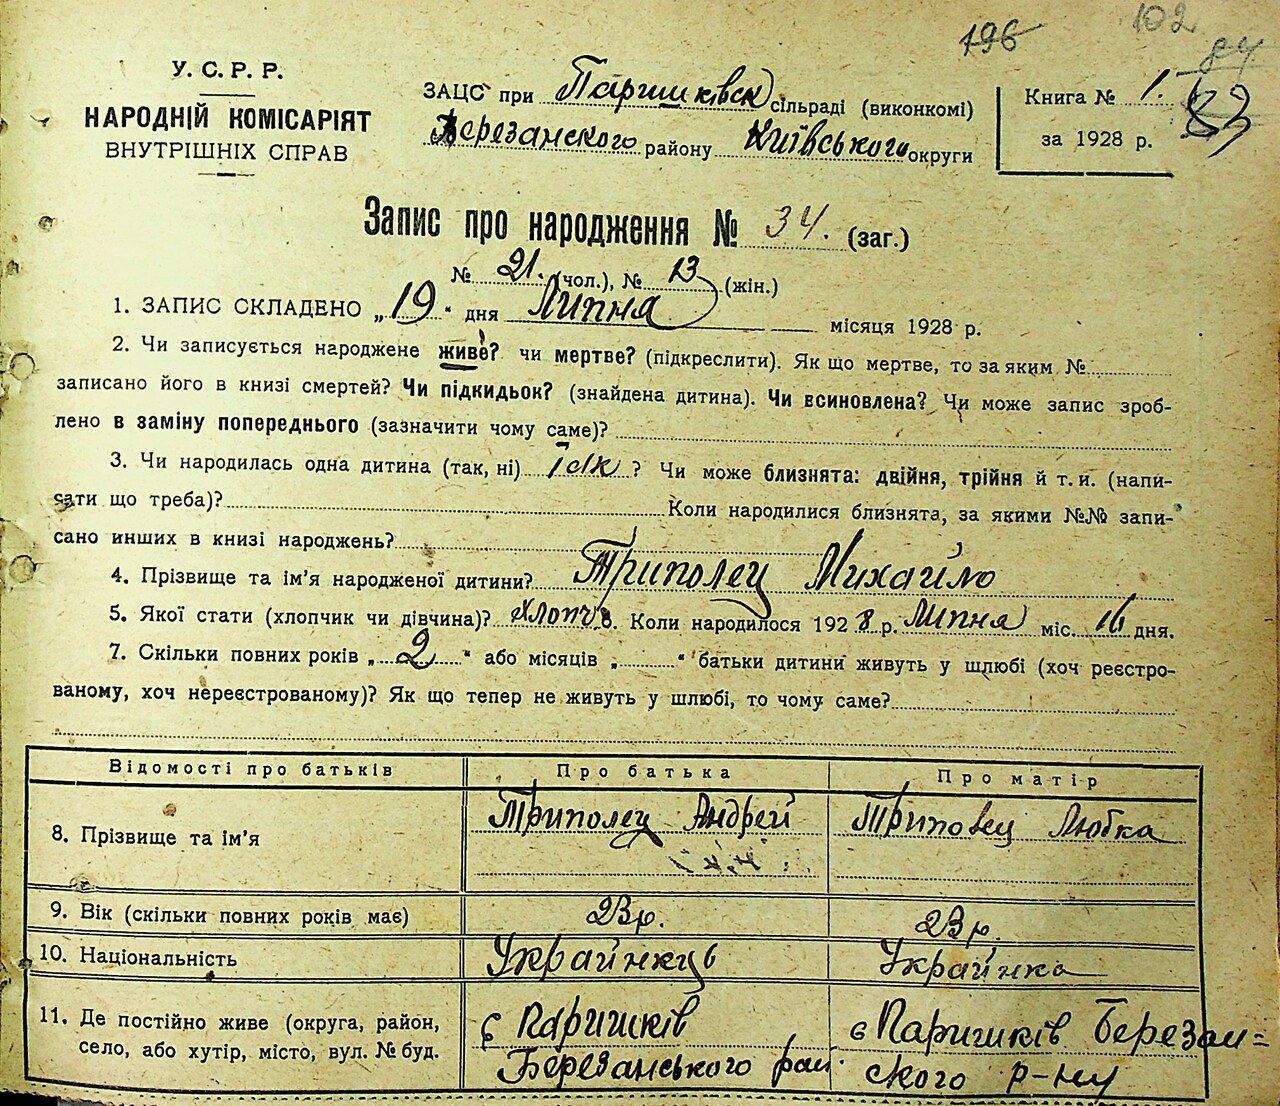 196 102
84
У. С. Р. Р.
НАРОДНІЙ КОМІСАРІЯТ
ВНУТРІШНІХ СПРАВ
ЗАЦС при Паришківськ сільраді (виконкомі)
Березанского району Київського округи
Книга № 1. 83
за 1928 р.
Запис про народження № 34. (заг.)
№ 21. (чол.), № 13 (жін.)
1. ЗАПИС СКЛАДЕНО „19“ дня Липня місяця 1928 р.
2. Чи записується народжене живе? чи мертве? (підкреслити). Як що мертве, то за яким №
записано його в книзі смертей? Чи підкидьок? (знайдена дитина). Чи всиновлена? Чи може запис зроб-
лено в заміну попереднього (зазначити чому саме)?
3. Чи народилась одна дитина (так, ні) так ? Чи може близнята: двійня, трійня й т. и. (напи-
сати що треба)? Коли народилися близнята, за якими №№ запи-
сано инших в книзі народжень?
4. Прізвище та ім’я народженої дитини? Триполец Михайло
5. Якої стати (хлопчик чи дівчина)? хлопч. 6. Коли народилося 1928 р. Липня міс. 16 дня.
7. Скільки повних років „2“ або місяців „ “ батьки дитини живуть у шлюбі (хоч реєстро-
ваному, хоч нереєстрованому)? Як що тепер не живуть у шлюбі, то чому саме?
Відомості про батьків Про батька Про матір
8. Прізвище та ім’я Триполец Андрей Триповец Любка
9. Вік (скільки повних років має) 23р. 23р.
10. Національність Українкць Українка
11. Де постійно живе (округа, район, с Паришків с Паришків Березан=
село, або хутір, місто, вул. № буд. Березанського рай. ского р-ну